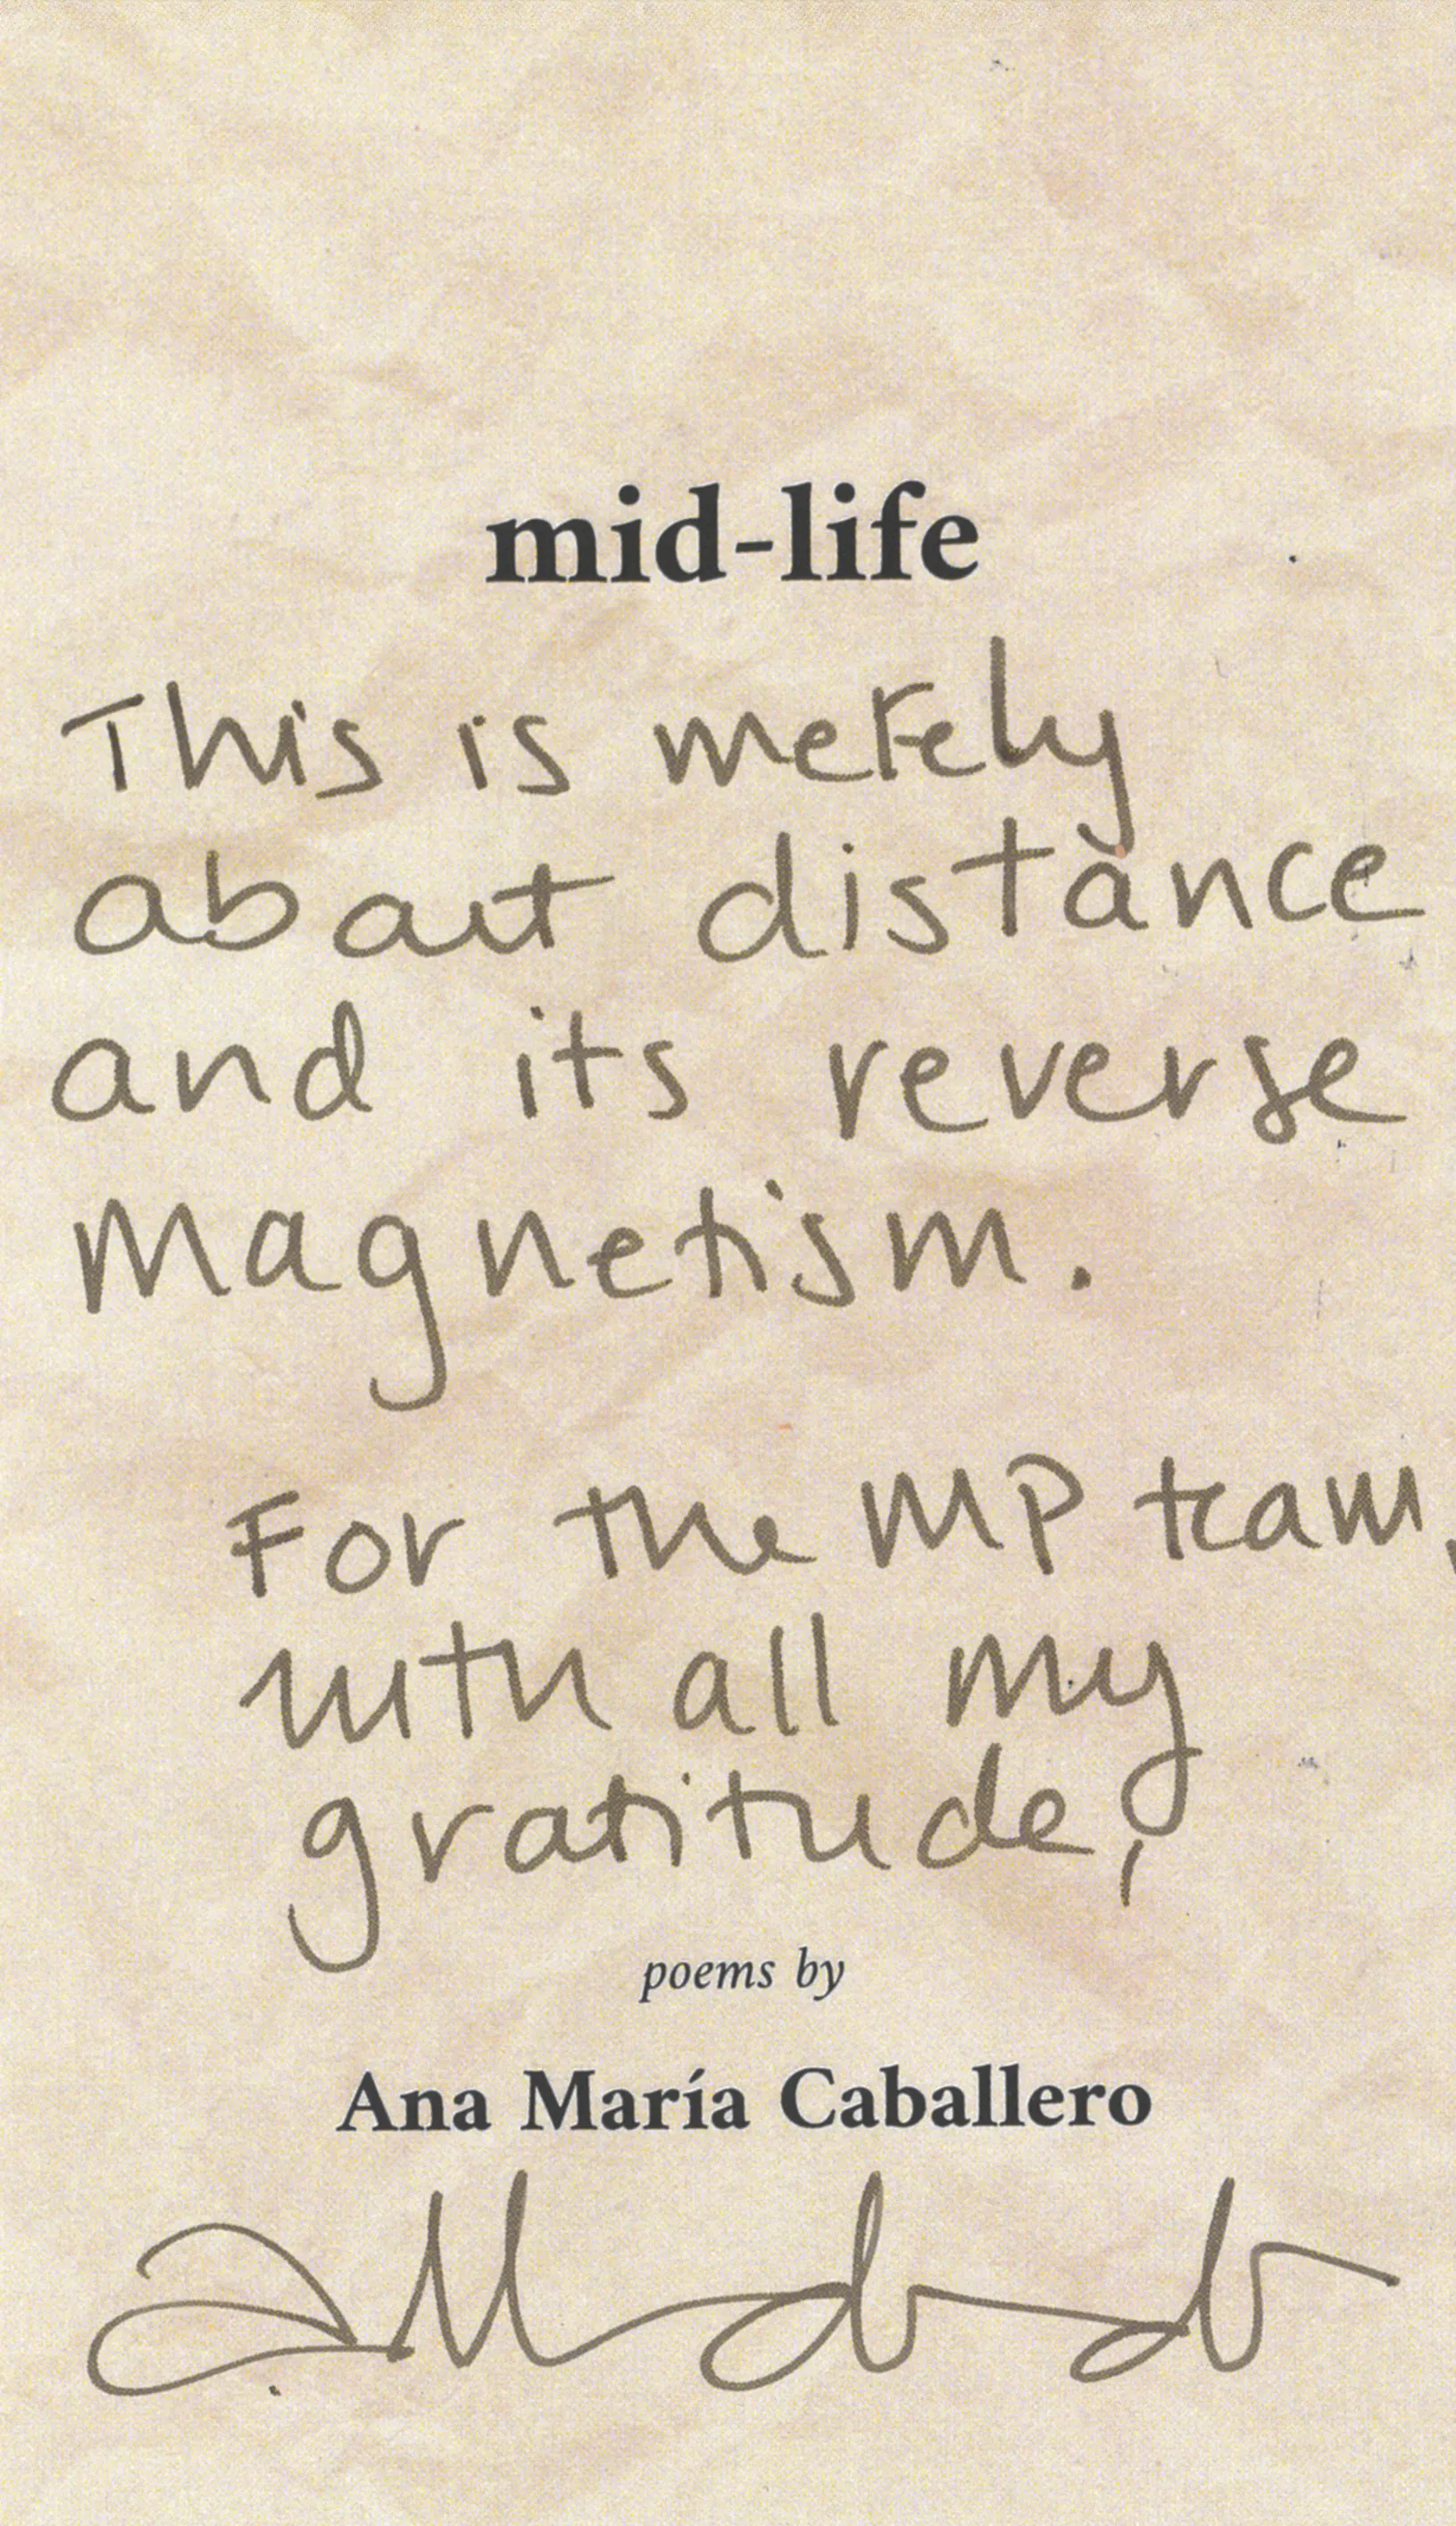 mid-life
This is merely
about distance
and its reverse
magnetism.
For the MP team,
with all my
gratitude,
poems by
Ana María Caballero